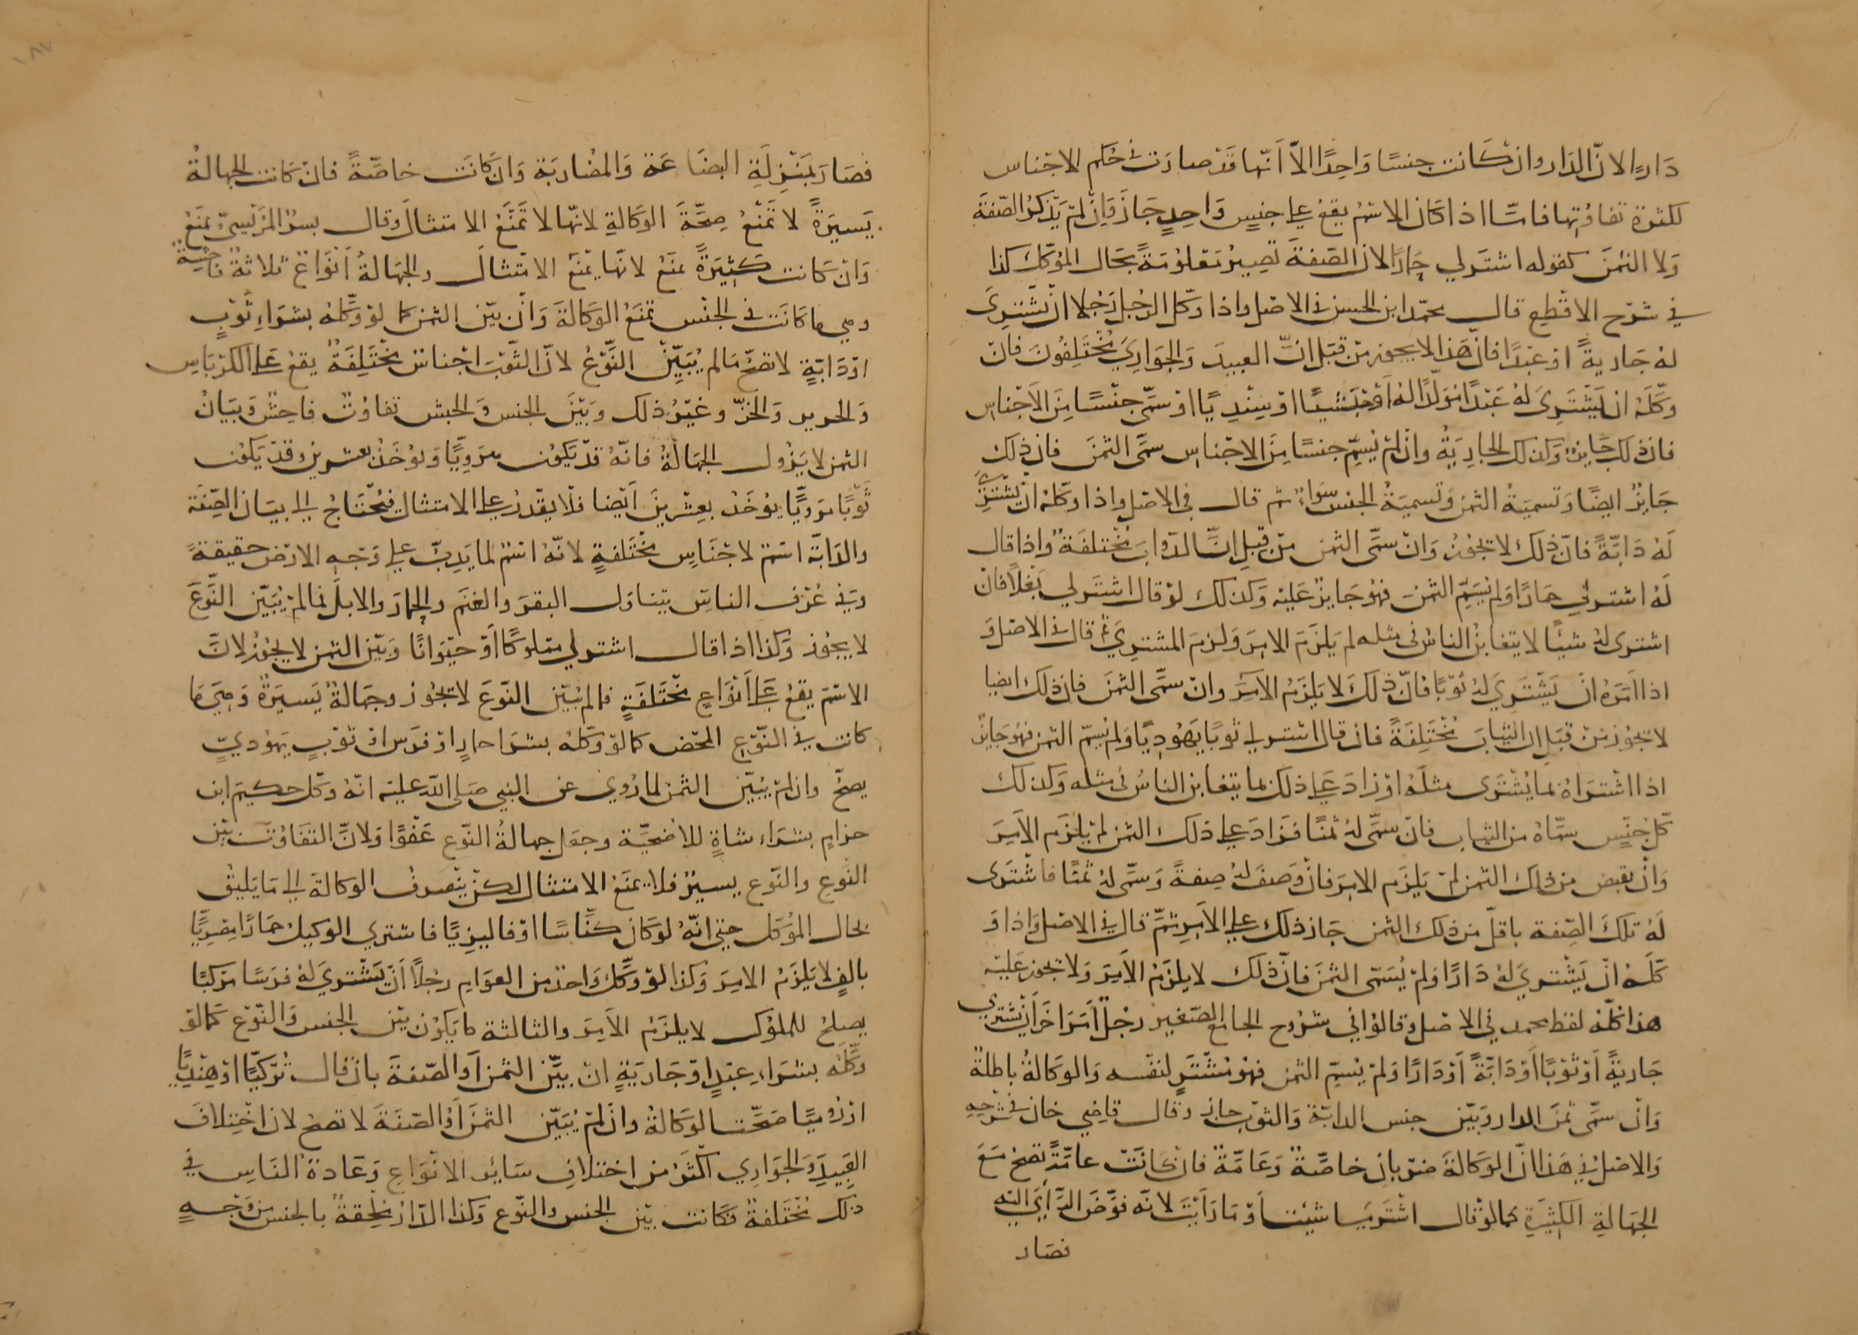 دَارٍ لانّ الدَار وان كَانت جنسًا وَاحِدًا الاّ اَنّها قَدْ صارَت في حُكم الاجْناس
لكثرة تفاوُتِها فامّا اذا كان الاسْم يقعُ على جنسٍ وَاحِدٍ جَازَ وَاِنْ لمْ يَذكرُ الصّفةَ
وَلا الثمنَ كقوله اشتَر لي حِمَارًا لان الصّفةَ تصِيرُ مَعْلُومَةً بحَال الموَكّل كذا
في شرْح الاقطع قال محمّد ابن الحسن في الاصْل واذا وكّل الرجُل رَجُلا انْ يشترى
لهُ جَاريةً اوْ عَبْدًا فانّ هَذا لا يجوز مِن قبَل انّ العبيدَ وَالجَوَاري مُخْتَلِفُونَ فان
وكّلهُ ان يَشترى لهُ عَبْدًا مُوَلّدًا لهُ اوْ حَبشيًا او سِنْدِيًا اوْ سمّى جنْسًا مِنَ الاَجْناس
فان ذلك جَايز وكذلك الجاريَةُ وانْ لمْ يُسمّ جنسًا مِنَ الاجْناس سمَّى الثمنَ فان ذلك
جَايزٌ ايضًا وَتسميَةُ الثمن وَتسميَةُ الجنس سَوَاءٌ ثم قال في الاصْل واذا وكّلهُ انْ يشْتَرِى
لهُ دَابّةً فانّ ذلك لا يجُوز وَانْ سمَّى الثمن مِنْ قبل انّ الدوابَ مُخْتلفَةٌ واذا قال
لهُ اشترلي حِمارًا وَلم يُسَمِّ الثمنَ فهُوَ جَايزٌ عَليْه وكذلك لوْ قال اشتَر لي بَغلًا فان
اشترى لهُ شيئًا لا يتغابن الناس في مثله لم يَلزَم الامِرَ وَلزمَ المشترِيَ ثم قال في الاصْل وَ
اذا اَمَرَهُ انْ يَشْتَرِيَ لهُ ثوْبًا فانّ ذلكَ لا يَلزمُ الاَمِرَ وانْ سَمَّى الثمَنَ فان ذلك ايضا
لا يجُوز مِن قبَل ان الثيابَ مُخْتَلِفَةً فان قال اشتر لي ثوبًا يَهُودِيًا وَلمْ يُسمّ الثمن فهُوَ جَايزٌ
اذا اشْترَاهُ بما يُشْتَرَى مثلَهُ اوْ زادَ عَلى ذلك بما يتغابن الناسُ في مثله وَكذلك
كلّ جِنْسٍ سمّاهُ من الثياب فانْ سمّى لهُ ثمنًا فزَادَ على ذلك الثمن لمْ يَلزَمِ الاَمِرَ
وَانْ نقَصَ من ذلك الثمن لمْ يَلزَم الامِرَ فانْ وَصَفَ لهُ صِفةً وَسمَّى لهُ ثمنًا فاشْتَرَى
لَهُ تلكَ الصّفة باقلّ من ذلك الثمن جَاز ذلك على الاَمِرِ ثمّ قال في الاصْل وَاذا وَ
كّلَهُ انْ يَشْترِيَ لهُ دَارًا وَلمْ يُسَمِّى الثمَنَ فانّ ذلك لا يلزَمُ الاَمِرَ وَلا يجوز عَليْه
هذا كلّهُ لفظ محمد في الاصْل وقالوْا في شرُوح الجامع الصّغير رجُلٌ اَمَرَ اخَرَ اَنْ يشترِي
جَاريَةً اَوْ ثَوْبًا اَوْ دَابّةً اَوْ دَارًا وَلمْ يُسمِّ الثمن فهُوْ مُشْتَرٍ لنفسه وَالوَكالةُ باطلةٌ
وَانْ سمَّى ثمَنَ الدار وَبيّن جنس الدابّة وَالثوْبِ جاز وقال قاضي خان في شرْحِهِ
وَالاصْلُ في هَذا انّ الوَكالةَ ضرْبان خاصّةٌ وَعَامّةٌ فانْ كانَتْ عامّةً تصحُ مَعَ
الجهَالةِ الكثيرَةِ كما لوْ قال اشْترلي ما شيْت اَوْ مَا رَاَيْتَ لانّه فوَّضَ الرَّأيَ اليه
فصَار
فصَارَ بمَنْزِلَةِ البِضَاعَة وَالمضارَبَة وَان كَانَت خاصّةً فانْ كَانت الجهالةُ
يَسيرَةً لا تَمْنَعُ صِحَّةَ الوَكالةِ لانّها لا تمَنَعُ الامتثالَ وقال بِشرُ المَرِّيسيّ تمنَعُ
وَانْ كَانت كَثِيرَةً تمنَعُ لانّها تمْنَعُ الامتثالَ والجهَالةُ اَنوَاعٌ ثلاثةٌ فاحِشةٌ
وهي ما كَانَت في الجنْس تمنَعُ الوَكالةَ وَانْ بيّن الثمن كما لوْ وكّلهُ بشرَاءِ ثَوْبٍ
اوْ دَابّةٍ لا تصحّ مَا لم يُبَيِّنْ النّوْعُ لانّ الثّوْبَ اجْناسٌ مُخْتَلِفَةٌ يقعُ عَلى الكرْباسِ
وَالحرير وَالخزّ وغيْرُ ذلك وَبَيْنَ الجنس وَالجنس تفاوُتٌ فاحِشٌ وَبيَانُ
الثمن لا يَزُول الجهَالةُ فانّهُ قدْ يَكُون هرَوِيًّا وَيؤخَذُ بعشرين وقدْ يَكُون
ثَوْبًا مَروِيًّا يُؤخَذُ بِعِشْرينَ اَيْضا فلا يقْدرُ على الامتثال فيُحْتَاجُ الى بيَان الصِّفَة
والدَابّة اسْم لاجْنَاسٍ مُخْتَلفةٍ لانّهُ اسْمٌ لما يَدِبّ على وَجْهِ الارْض حقيقةً
وَفي عُرْف الناس يتناوَل البقرَ وَالغنَم والحِمَارَ والابلَ فما لمْ يُبَيّن النّوْعَ
لا يجُوز وَكذا اذا قال اشتر لي مملوكًا اَوْ حَيَوَانًا وَبيّنَ الثمن لا يجُوز لانّ
الاسْمَ يقعُ عَلى اَنْوَاعٍ مُخْتَلفةٍ فما لم يُبَيّن النّوْعَ لا يجُوز وجهَالةٌ يَسيرَةٌ وَهيَ ما
كانت في النّوْعِ المحْض كما لوْ وَكلهُ بشرَا حِمارٍ اوْ فرَسٍ اوْ ثَوْبٍ يَهُوديّ
يصحّ وان لمْ يُبَيّن الثمنُ لما رُوِيَ عن النبي صَلى اللّٰه عليْه انّهُ وكّلَ حكيمَ ابن
حزامٍ بشرَاءِ شاةٍ للاضحيّة وجعَل جهالةُ النّوْع عَفْوًا وَلانّ التفَاوُتَ بيْن
النّوع والنّوع يسيرٌ فلا يمنَعُ الامتثال لكنّ ينْصرفُ الوكالةَ الى مَا يَليقُ
بحَال المُوَكل حتى انّهُ لوْ كان كنّاسًا اوْ فاليزيًا فاشترِي الوكيلُ حِمارًا مِصْرِيًّا
بالفٍ لا يَلزَمُ الامِرَ وَكذا لوْ وَكّلَ وَاحدٌ من العوَام رجُلًا اَنْ يَشْتري لهُ فرَسًا مَركبًا
يصلحُ للملوك لا يلزَمُ الاَمِرَ والثالثة ما يَكوْن بيْن الجنس وَالنّوْع كمَا لوْ
وكّلَهُ بشرَاءِ عبْدٍ اوْ جَاريَةٍ انْ بيّن الثمنَ اَوْ الصّفةَ بان قال تُرْكِيًّا اوْ هِنْدِيًّا
اوْ رُومِيًّا صَحّت الوَكالةُ وانْ لمْ يُبَيّن الثمنَ اَوْ الصّفةَ لا تصحّ لانّ اخْتِلافَ
العَبِيدِ وَالجَوَاري اكثرُ من اختلاف سَائر الانْوَاع وَعَادةُ النّاس في
ذلك مُخْتَلفةٌ وكَانت بيْن الجنس والنّوع وَكذا الدّارُ مُلْحِقةٌ بالجنس مِنْ وَجْهٍ